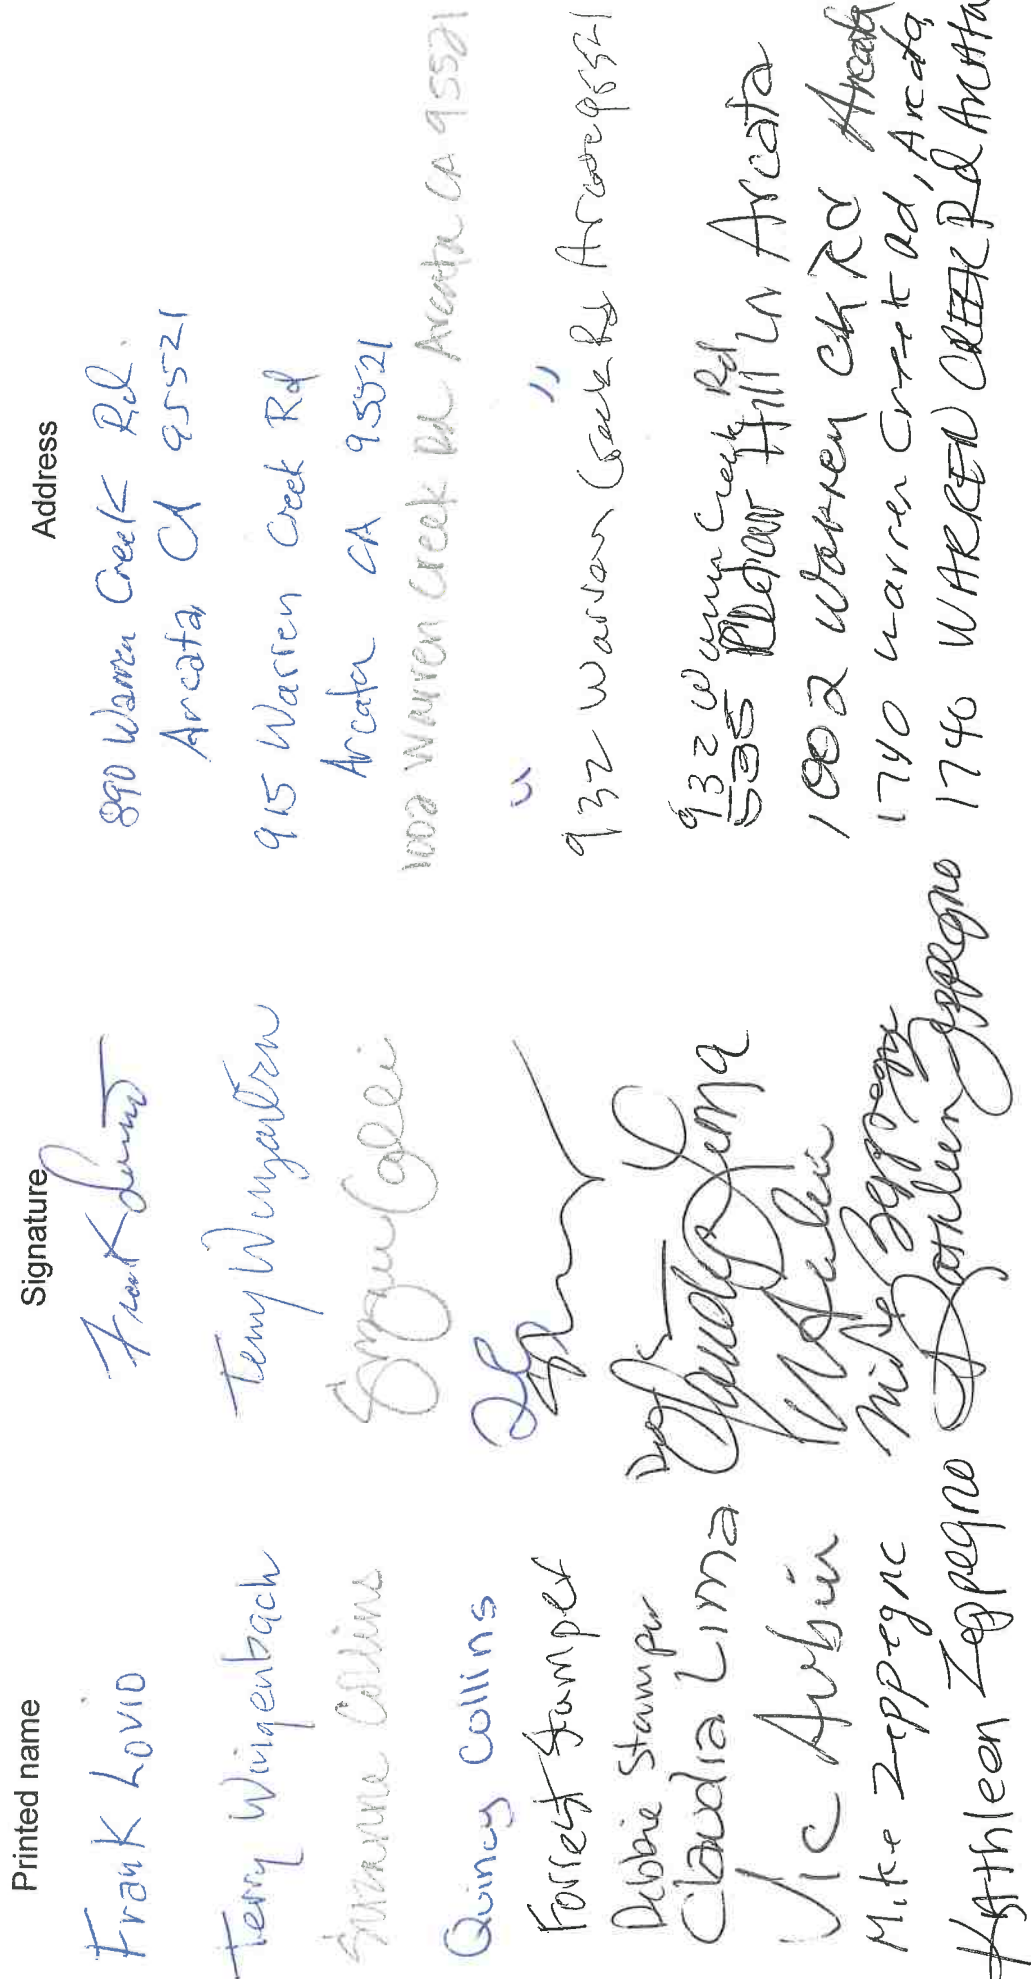 Printed name Signature Address
Frank Lovio Frank 890 Warren Creek Rd.
Arcata CA 95521
Terry Wingenbach Terry 915 Warren Creek Rd
Arcata CA 95521
Suzanne Collins 1002 Warren Creek Rd Arcata CA 95521
Quincy Collins " "
Forrest Stamper 932 Warren Creek Rd 95521
Debbie Stamper 932 Warren Creek Rd
Claudia Lima Claudia Lima Hill Ln Arcata
Vic Aubin 1002 Warren Ck Rd Arcata
Mike Zeppegno Mike Zeppegno 1740 Warren Creek Rd, Arcata
Kathleen Zeppegno Kathleen Zeppegno 1740 WARREN CREEK Rd ArcAta